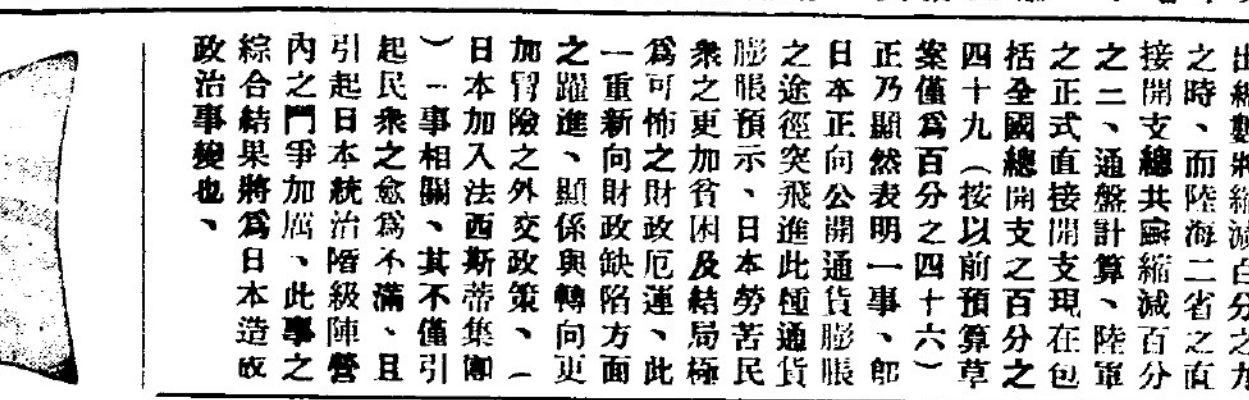 出總數將縮減百分之九
之時、而陸海二省之直
接開支總共祇縮減百分
之二、通盤計算、陸軍
之正式直接開支現在包
括全國總開支之百分之
四十九（按以前預算草
案僅爲百分之四十六）
正乃顯然表明一事、卽
日本正向公開通貨膨脹
之途徑突飛進此種通貨
膨脹預示、日本勞苦民
衆之更加貧困及結局極
爲可怖之財政厄運、此
一重新向財政缺陷方面
之躍進、顯係與轉向更
加冒險之外交政策、（
日本加入法西斯蒂集團
）一事相關、其不僅引
起民衆之愈爲不滿、且
引起日本統治階級陣營
內之鬥爭加厲、此事之
綜合結果將爲日本造成
政治事變也、